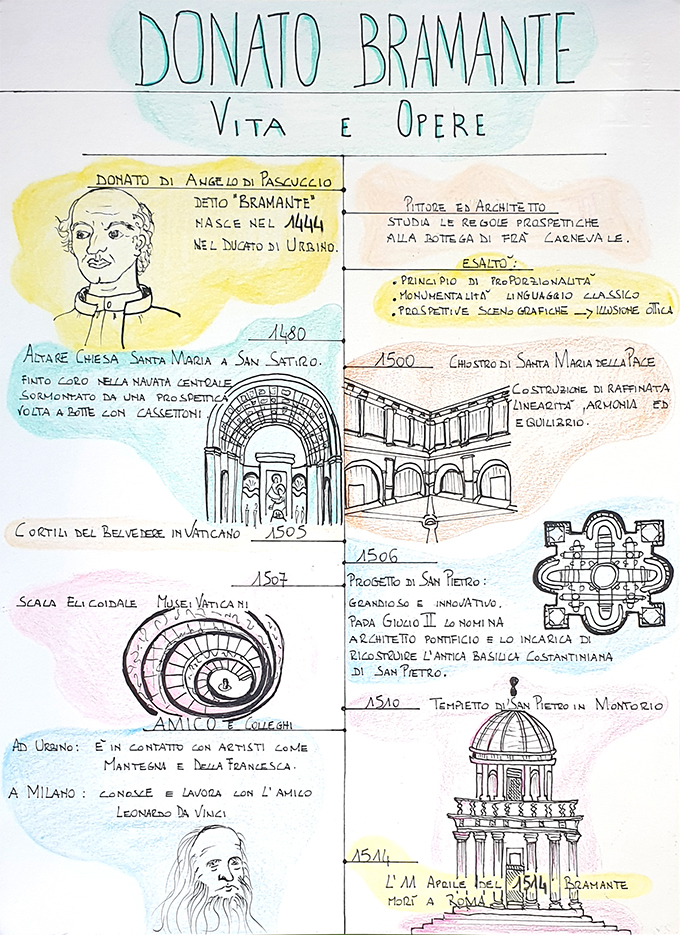 DONATO BRAMANTE
VITA E OPERE
DONATO DI ANGELO DI PASCUCCIO
DETTO "BRAMANTE"
NASCE NEL 1444
NEL DUCATO DI URBINO.
PITTORE ED ARCHITETTO
STUDIA LE REGOLE PROSPETTICHE
ALLA BOTTEGA DI FRÀ CARNEVALE.
ESALTÒ:
• PRINCIPIO DI PROPORZIONALITÀ
• MONUMENTALITÀ LINGUAGGIO CLASSICO
• PROSPETTIVE SCENOGRAFICHE → ILLUSIONE OTTICA
1480
ALTARE CHIESA SANTA MARIA A SAN SATIRO.
FINTO CORO NELLA NAVATA CENTRALE
SORMONTATO DA UNA PROSPETTICA
VOLTA A BOTTE CON CASSETTONI
1500
CHIOSTRO DI SANTA MARIA DELLA PACE
COSTRUZIONE DI RAFFINATA
LINEARITÀ, ARMONIA ED
EQUILIBRIO.
CORTILI DEL BELVEDERE IN VATICANO 1505
1506
PROGETTO DI SAN PIETRO:
GRANDIOSO E INNOVATIVO.
PAPA GIULIO II LO NOMINA
ARCHITETTO PONTIFICIO E LO INCARICA DI
RICOSTRUIRE L'ANTICA BASILICA COSTANTINIANA
DI SAN PIETRO.
1507
SCALA ELICOIDALE MUSEI VATICANI
1510 TEMPIETTO DI SAN PIETRO IN MONTORIO
AMICO E COLLEGHI
AD URBINO: È IN CONTATTO CON ARTISTI COME
MANTEGNA E DELLA FRANCESCA.
A MILANO: CONOSCE E LAVORA CON L'AMICO
LEONARDO DA VINCI
1514
L'11 APRILE DEL 1514 BRAMANTE
MORÌ A ROMA